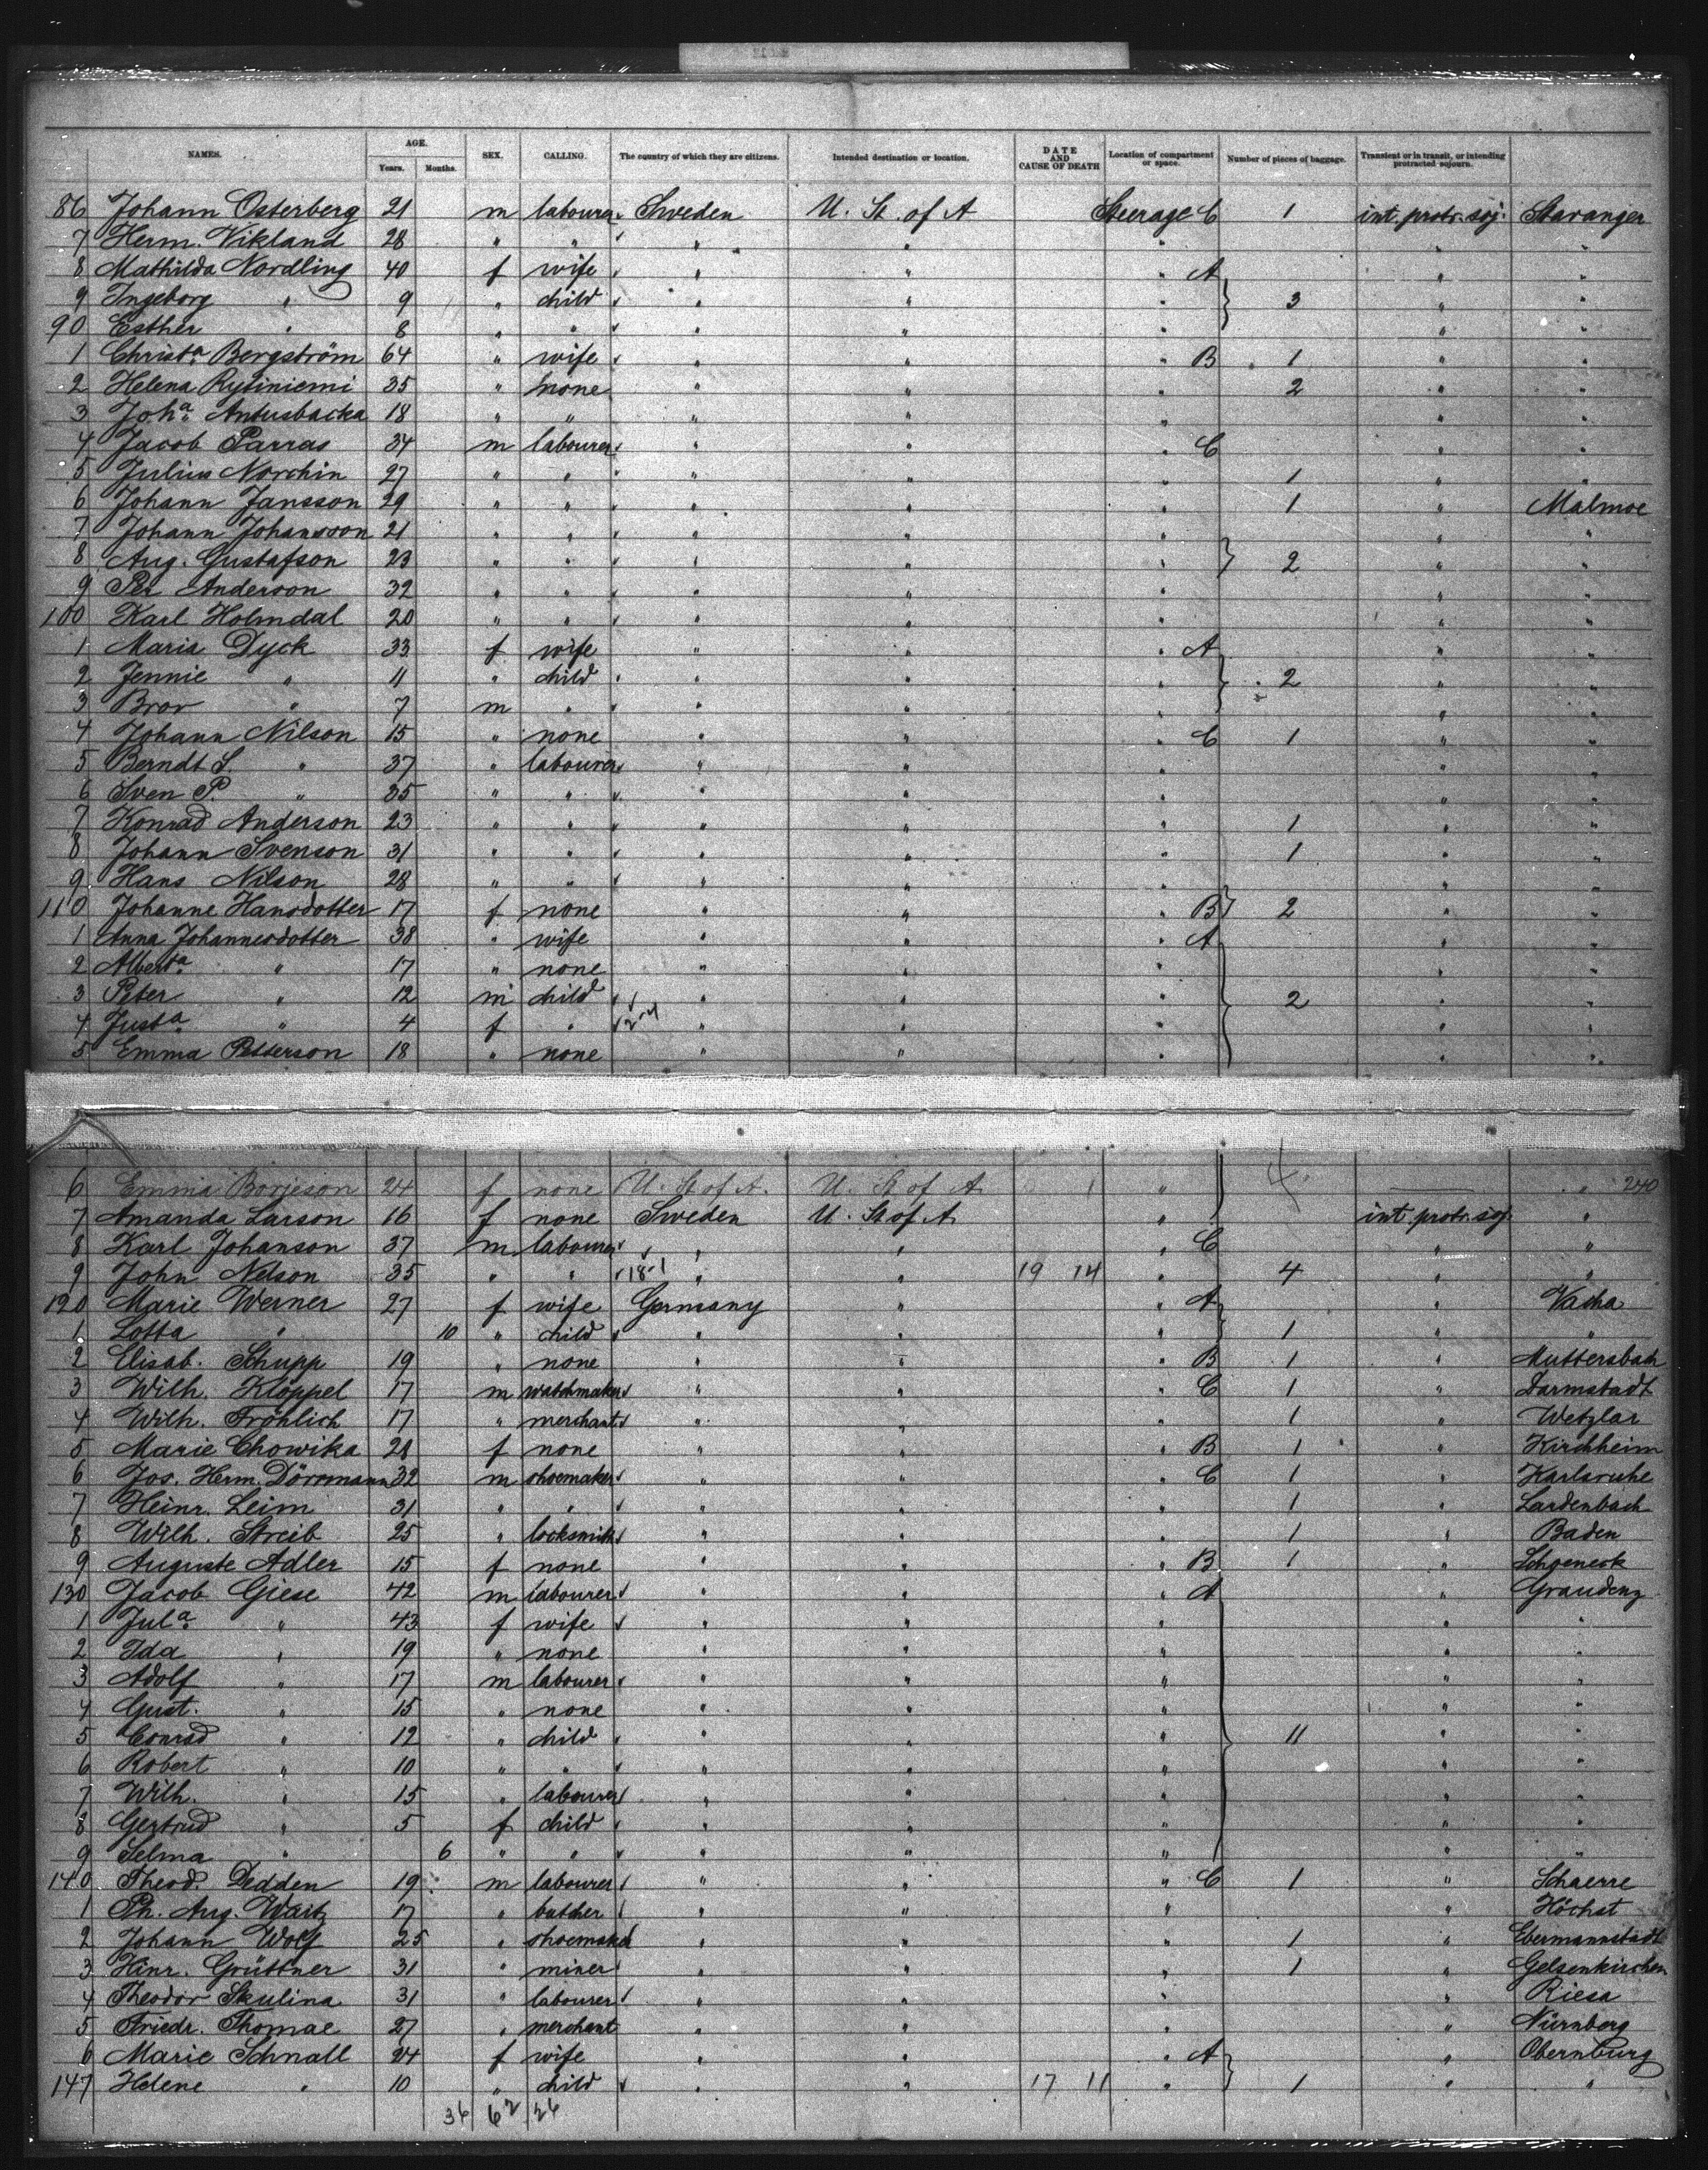 NAMES. AGE. Years. Months. SEX. CALLING. The country of which they are citizens. Intended destination or location. DATE AND CAUSE OF DEATH Location of compartment or space. Number of pieces of baggage. Transient or in transit, or intending protracted sojourn.
86 Johann Osterberg 21 m labourer Sweden U. St. of A Steerage C 1 int. protr. soj. Stavanger
7 Herm. Vikland 28 " " " " " " "
8 Mathilda Nordling 40 f wife " " " A " "
9 Ingeborg " 9 " child " " " 3 " "
90 Esther " 8 " " " " " " "
1 Christa Bergström 64 " wife " " " B 1 " "
2 Helena Rytiniemi 35 " none " " " 2 " "
3 Joha Antusbacka 18 " " " " " " "
4 Jacob Parras 34 m labourer " " " C " "
5 Julius Norchin 27 " " " " " 1 " "
6 Johann Jansson 29 " " " " " 1 " Malmoe
7 Johann Johansson 21 " " " " " " "
8 Aug. Gustafson 23 " " " " " 2 " "
9 Per Anderson 32 " " " " " " "
100 Karl Holmdal 20 " " " " " " "
1 Maria Dyck 33 f wife " " " A " "
2 Jennie " 11 " child " " " 2 " "
3 Bror " 7 m " " " " " "
4 Johann Nilson 15 " none " " " C 1 " "
5 Berndt S. " 37 " labourer " " " " "
6 Sven P. " 35 " " " " " " "
7 Konrad Anderson 23 " " " " " 1 " "
8 Johann Svenson 31 " " " " " 1 " "
9 Hans Nilson 28 " " " " " " "
110 Johanne Hansdotter 17 f none " " " B 2 " "
1 Anna Johannesdotter 38 " wife " " " A " "
2 Alberta " 17 " none " " " " "
3 Peter " 12 m child " " " 2 " "
4 Justa " 4 f " 2-4 " " " " "
5 Emma Petterson 18 " none " " " " "
6 Emma Borjeson 24 f none U. St of A. U. St of A 1 " 4 " 240
7 Amanda Larson 16 f none Sweden U. St of A " int. protr. soj. "
8 Karl Johanson 37 m labourer " " " C " "
9 John Nelson 35 " " 18-1 " " 19 14 " 4 " "
120 Marie Werner 27 f wife Germany " " A " Vacha
1 Lotta " 10 " child " " " 1 " "
2 Elisab. Schupp 19 " none " " " B 1 " Muttersbach
3 Wilh. Klöppel 17 m watchmaker " " " C 1 " Darmstadt
4 Wilh. Fröhlich 17 " merchant " " " 1 " Wetzlar
5 Marie Chowika 28 f none " " " B 1 " Kirchheim
6 Jos. Herm. Dörrmann 32 m shoemaker " " " C 1 " Karlsruhe
7 Heinr. Leim 31 " " " " " 1 " Lardenbach
8 Wilh. Streib 25 " locksmith " " " 1 " Baden
9 Auguste Adler 15 f none " " " B 1 " Schoeneck
130 Jacob Giese 42 m labourer " " " A " Graudenz
1 Jula " 43 f wife " " " " "
2 Ida " 19 " none " " " " "
3 Adolf " 17 m labourer " " " " "
4 Gust. " 15 " none " " " " "
5 Conrad " 12 " child " " " 11 " "
6 Robert " 10 " " " " " " "
7 Wilh. " 15 " labourer " " " " "
8 Gertrud " 5 f child " " " " "
9 Selma " 6 " " " " " " "
140 Theod. Dedden 19 m labourer " " " C 1 " Schaerre
1 Ph. Aug. Waitz 17 " butcher " " " " Höchst
2 Johann Wolf 25 " shoemaker " " " 1 " Ebermannstadt
3 Hinr. Grüttner 31 " miner " " " 1 " Gelsenkirchen
4 Theodor Skulina 31 " labourer " " " " Riesa
5 Friedr. Thomae 27 " merchant " " " " Nürnberg
6 Marie Schnall 24 f wife " " " A " Obernburg
147 Helene " 10 " child " " 17 11 " 1 " "
36 62 26